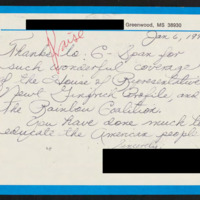 Greenwood, MS 38930
Jan 6, 199
Praise
Thanks to: C-Span for
such wonderful coverage
of the House of Representatives
Newt Gingrich Profile, and
The Rainbow Coalition.
You have done much to
educate the American people.
Sincerely,